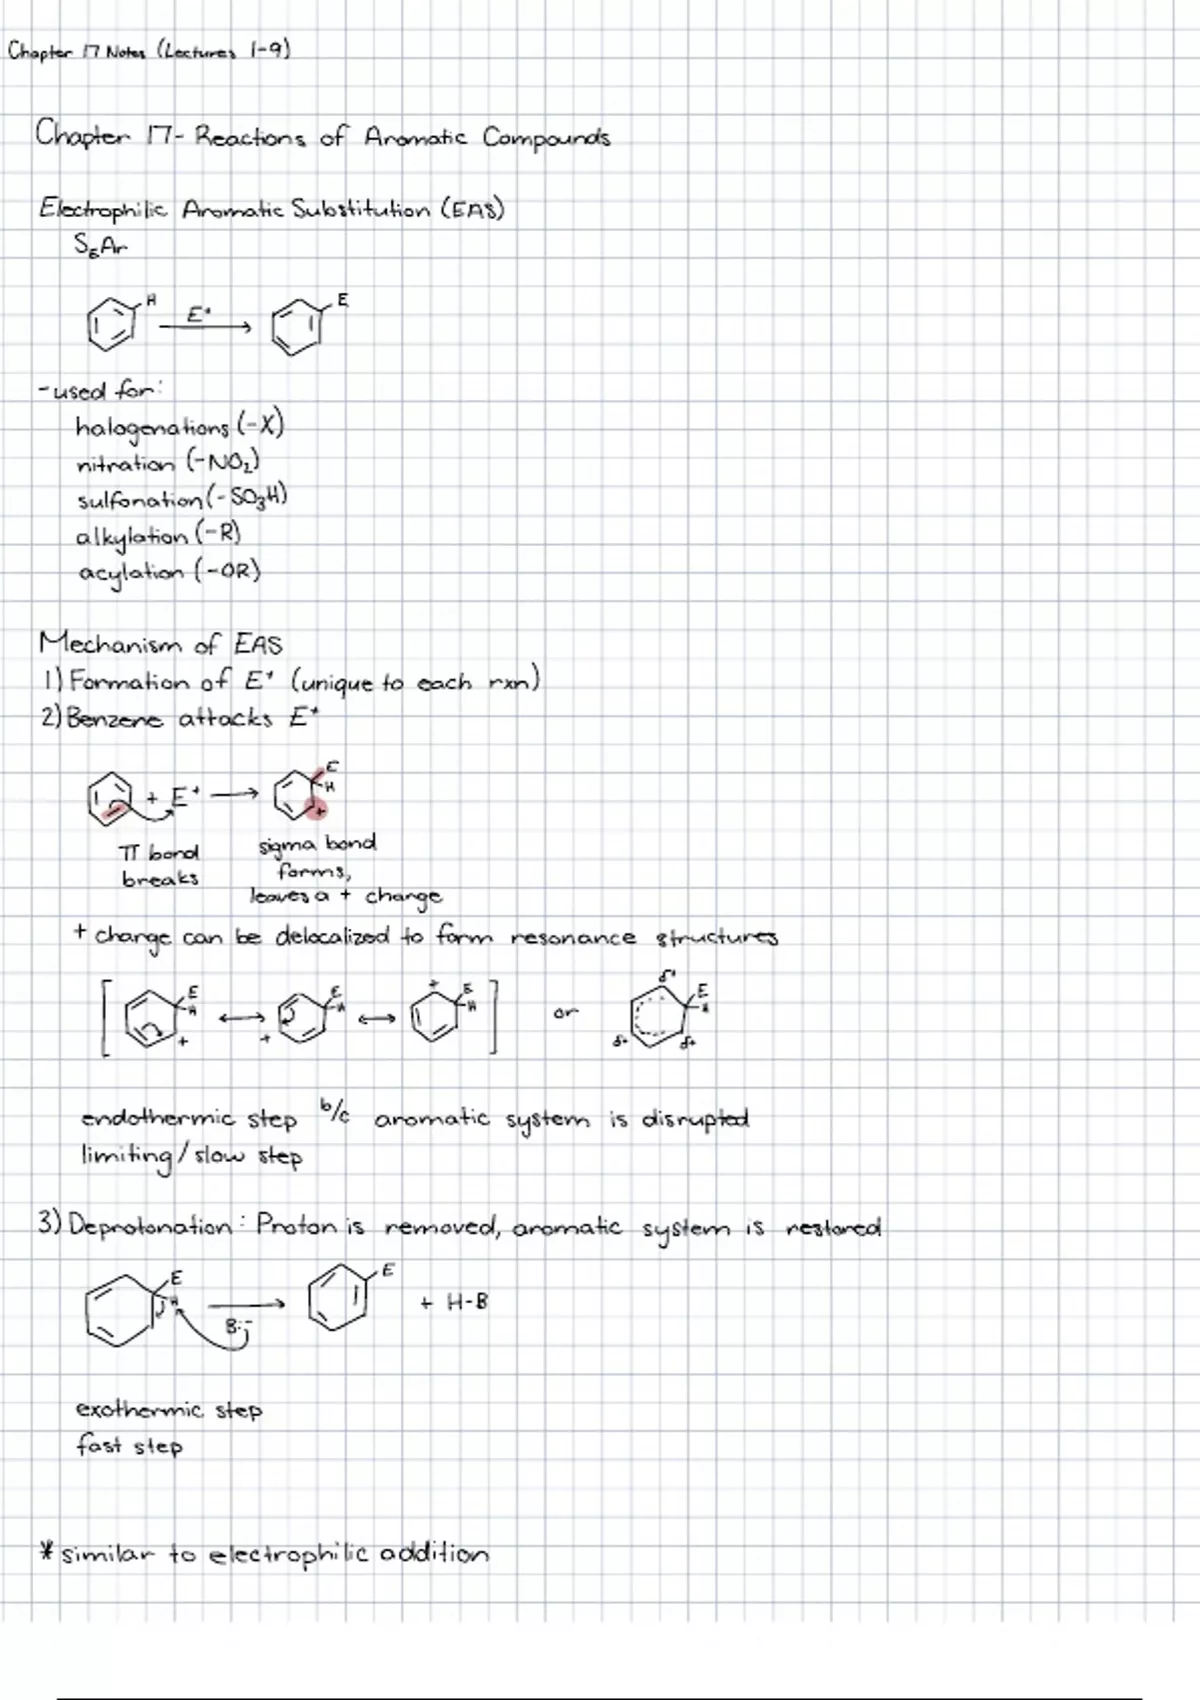 Chapter 17 Notes (Lectures 1-9)
Chapter 17- Reactions of Aromatic Compounds
Electrophilic Aromatic Substitution (EAS)
SEAr
H E⁺ E
-used for:
halogenations (-X)
nitration (-NO₂)
sulfonation (-SO₃H)
alkylation (-R)
acylation (-OR)
Mechanism of EAS
1) Formation of E⁺ (unique to each rxn)
2) Benzene attacks E⁺
+ E⁺ E H +
π bond
breaks
sigma bond
forms,
leaves a + change
+ charge can be delocalized to form resonance structures
E H + E H + + E H or δ+ E H δ+ δ+
endothermic step b/c aromatic system is disrupted
limiting/slow step
3) Deprotonation: Proton is removed, aromatic system is restored
E H B:⁻ E + H-B
exothermic step
fast step
* similar to electrophilic addition